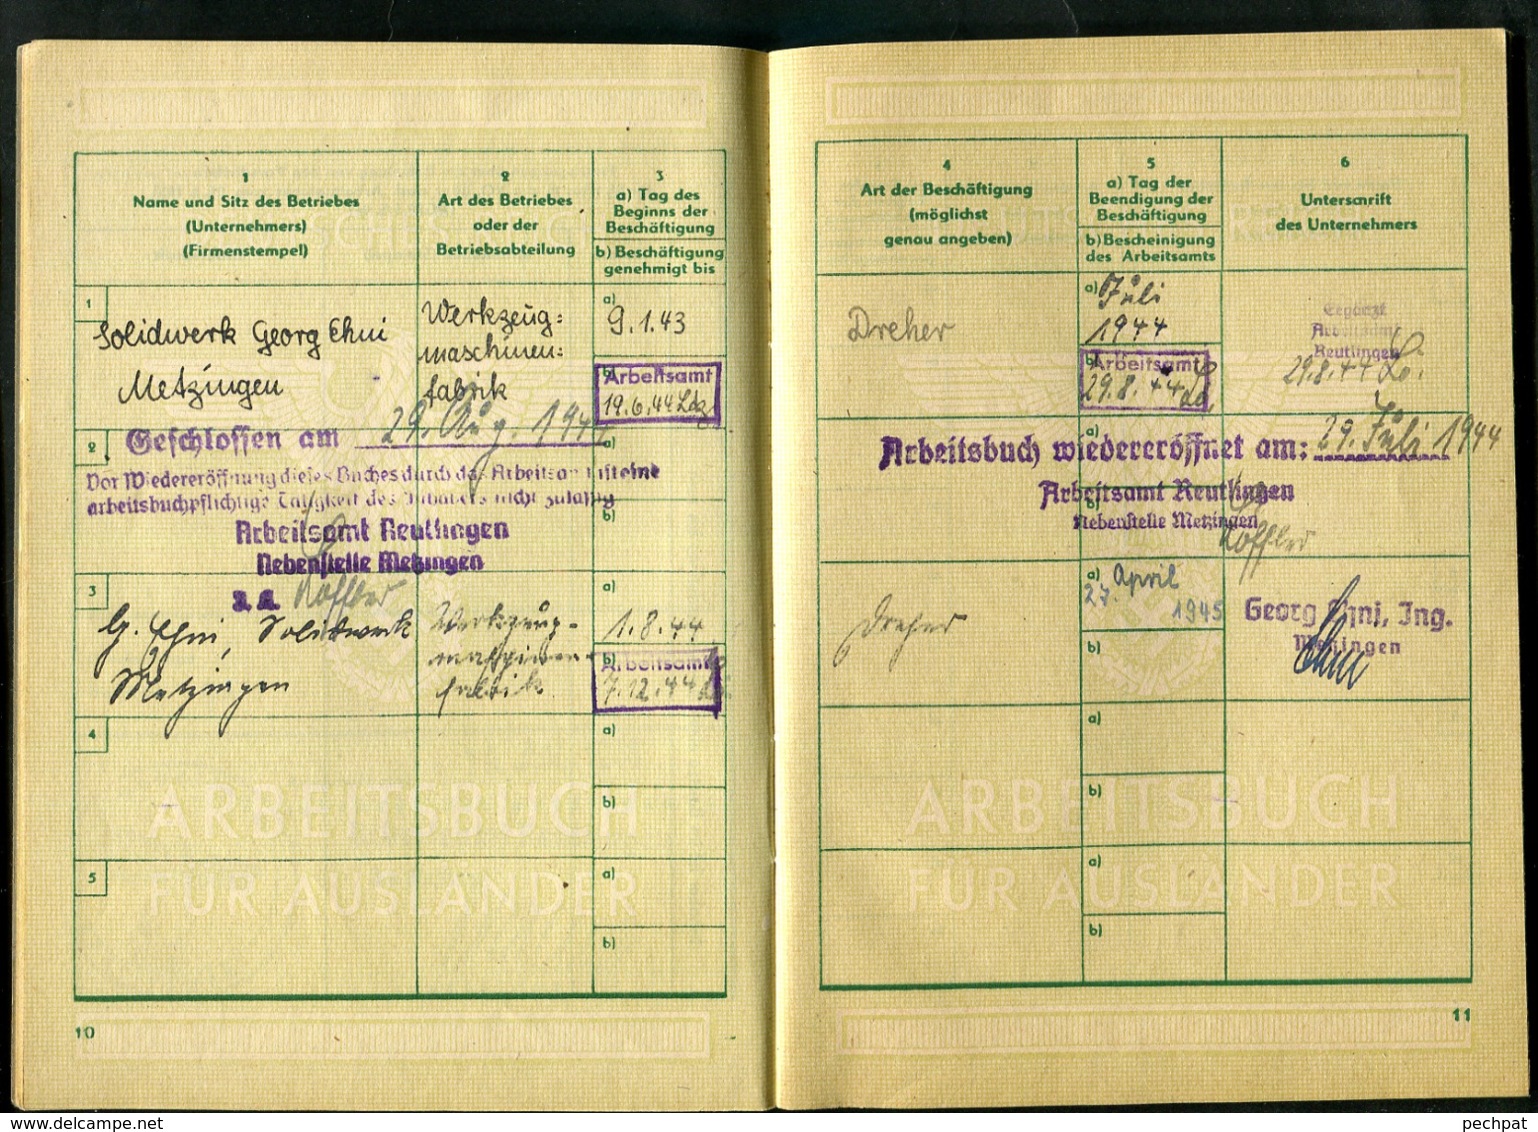 1
Name und Sitz des Betriebes
(Unternehmers)
(Firmenstempel)
2
Art des Betriebes
oder der
Betriebsabteilung
3
a) Tag des
Beginns der
Beschäftigung
b) Beschäftigung
genehmigt bis
1
Solidwerk Georg Ehni
Metzingen
Werkzeug:
maschinen:
fabrik
a)
9.1.43
b)
Arbeitsamt
19.6.44
2
Geschlossen am 29. Aug. 1944
Vor Wiedereröffnung dieses Buches durch das Arbeitsamt ist eine
arbeitsbuchpflichtige Tätigkeit des Inhabers nicht zulässig
Arbeitsamt Reutlingen
Nebenstelle Metzingen
J. A. Koffler
a)
b)
3
G. Ehni, Solidwerk
Metzingen
Werkzeug-
maschinen-
fabrik
a)
1.8.44
b)
Arbeitsamt
7.12.44
4
a)
b)
5
a)
b)
ARBEITSBUCH
FÜR AUSLÄNDER
10
4
Art der Beschäftigung
(möglichst
genau angeben)
5
a) Tag der
Beendigung der
Beschäftigung
b) Bescheinigung
des Arbeitsamts
6
Unterschrift
des Unternehmers
Dreher
a) Juli
1944
b)
Arbeitsamt
29.8.44
Ergänzt
Arbeitsamt
Reutlingen
29.8.44
Arbeitsbuch wiedereröffnet am: 29. Juli 1944
Arbeitsamt Reutlingen
Nebenstelle Metzingen
Koffler
a)
b)
Dreher
a) 27. April
1945
b)
Georg Ehni, Ing.
Metzingen
Ehni
a)
b)
a)
b)
ARBEITSBUCH
FÜR AUSLÄNDER
11
pechpat